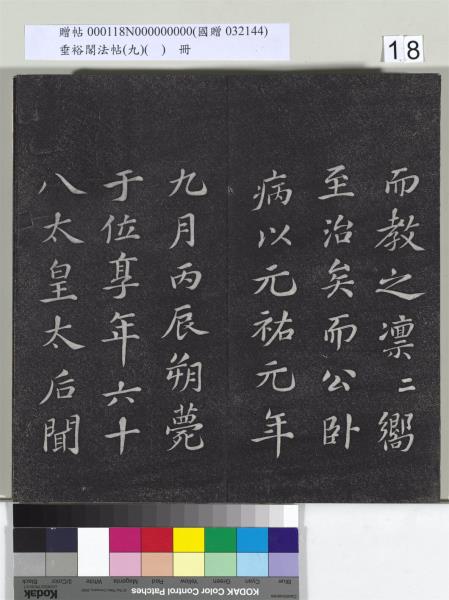 贈帖 000118N000000000(國贈 032144)
垂裕閣法帖(九)( ) 冊
18
而教之凛二嚮
至治矣而公卧
病以元祐元年
九月丙辰朔薨
于位享年六十
八太皇太后聞
Blue Cyan Green Yellow Red Magenta White 3/Color Black
Kodak
KODAK Color Control Patches